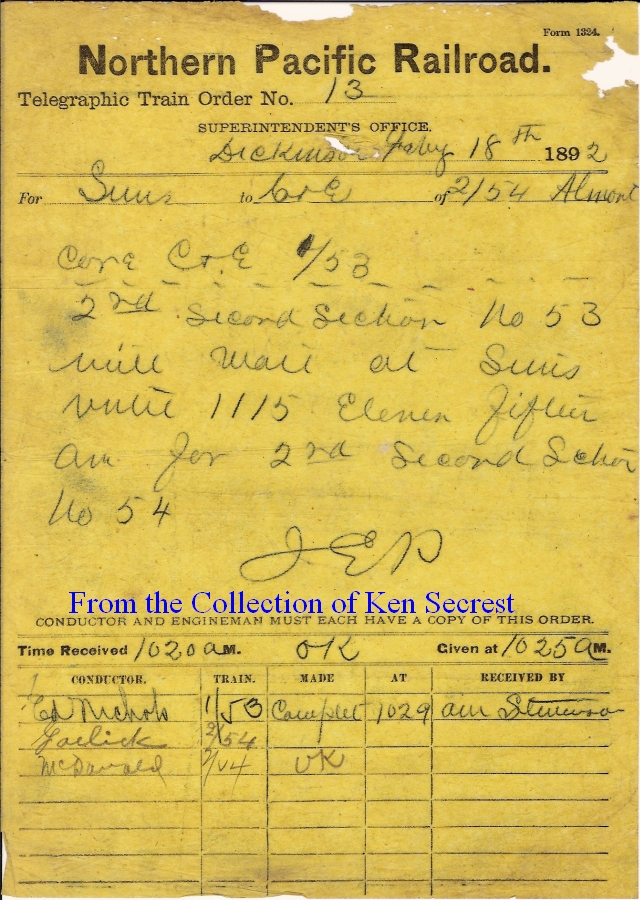 Form 1324.
Northern Pacific Railroad.
Telegraphic Train Order No. 13
SUPERINTENDENT'S OFFICE.
Dickinson Feby 18th 1892
For Sims to C&E of 2/54 Almont
C&E 1/53
2nd Second Section No 53
will wait at Sims
until 1115 Eleven fifteen
am for 2nd Second Section
No 54
From the Collection of Ken Secrest
CONDUCTOR AND ENGINEMAN MUST EACH HAVE A COPY OF THIS ORDER.
Time Received 1020 a M. OK Given at 1025 A M.
CONDUCTOR. TRAIN. MADE AT RECEIVED BY
Ed Nichols 1/53 Complet 1029 am
Garlick 2/54
McDonald OK